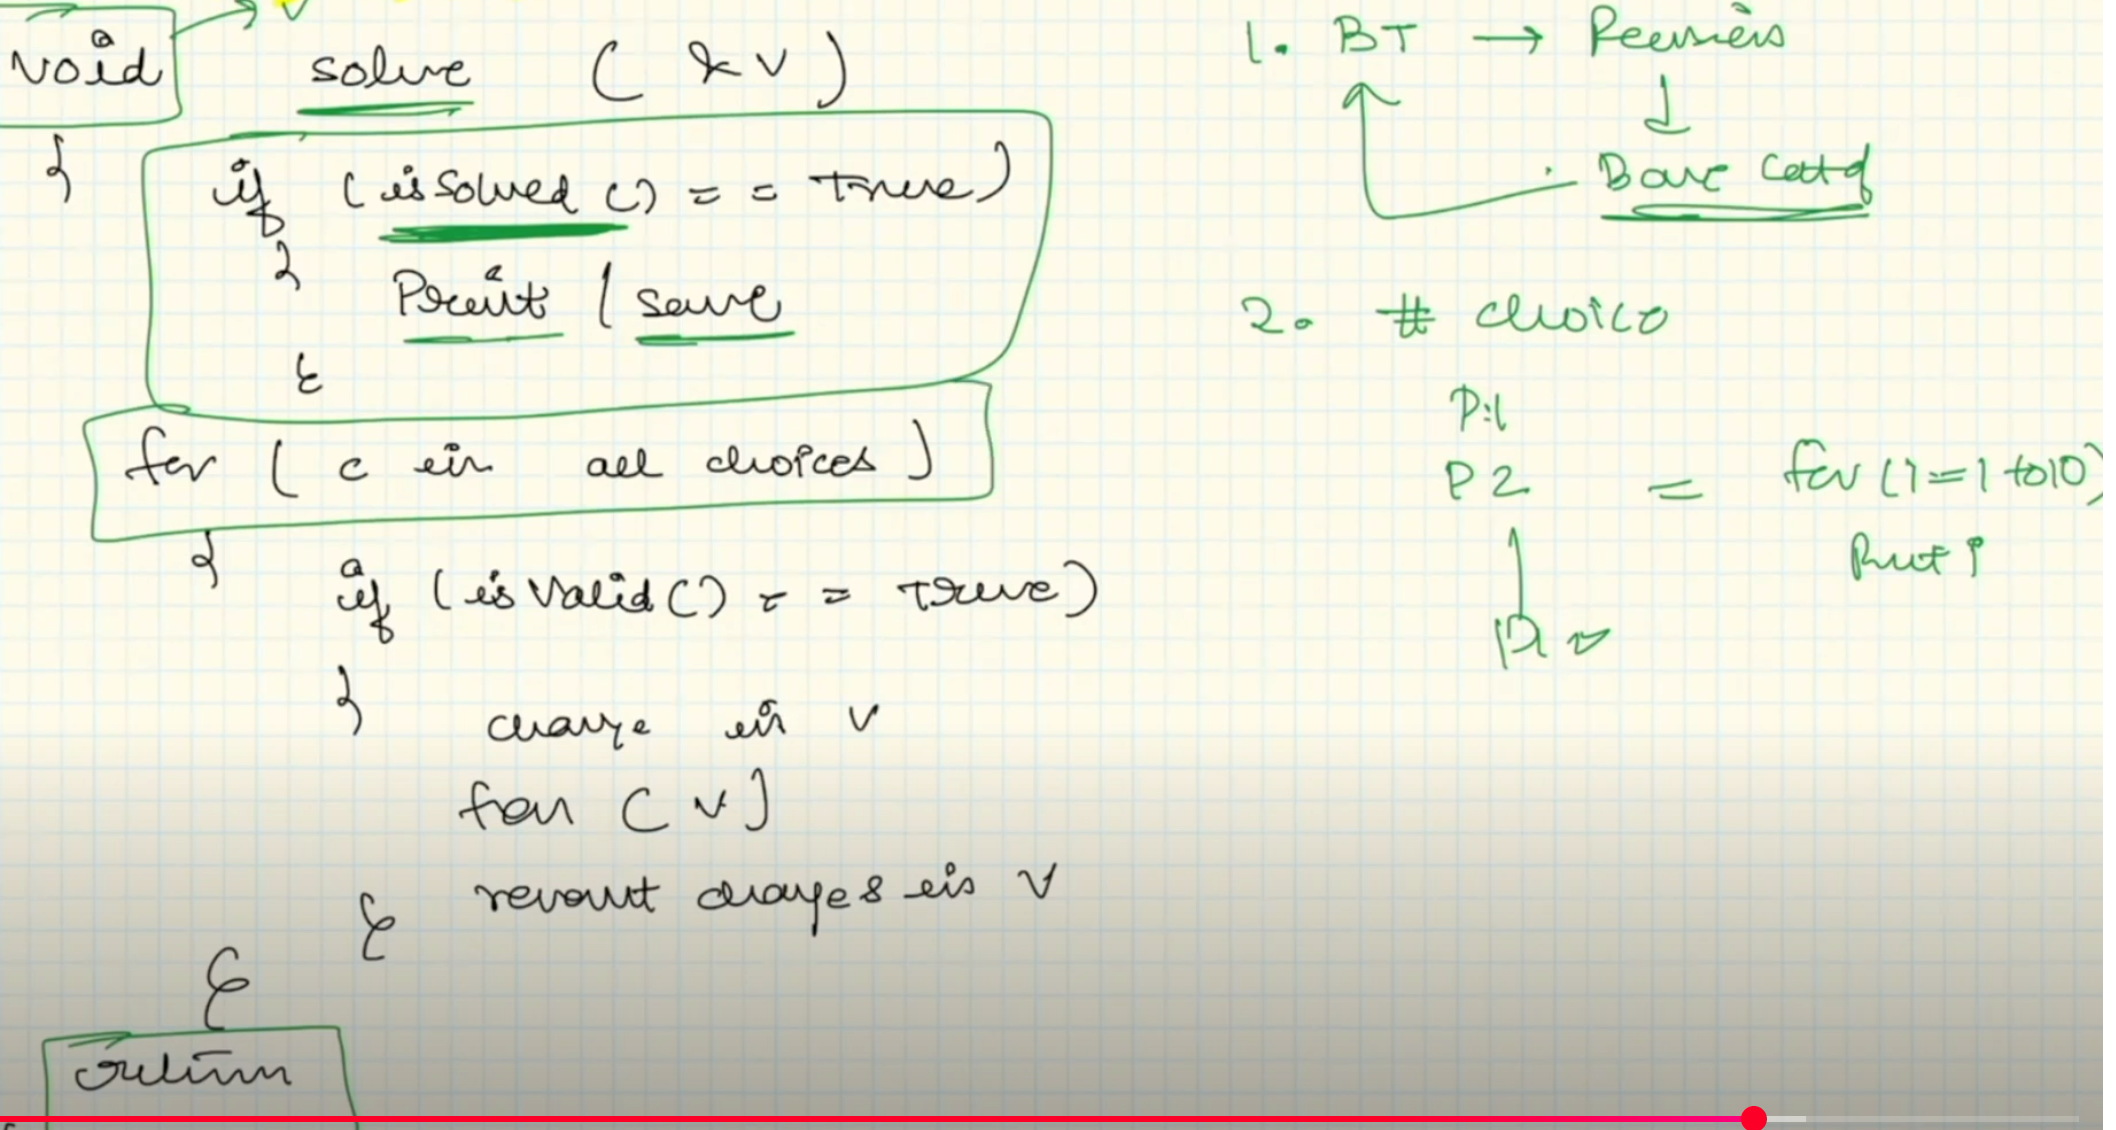 void solve ( & v )
{
if ( isSolved () == true )
{
Print / save
}
for ( c in all choices )
{
if ( is Valid () == true )
{
change in v
fon ( v )
revert changes in v
}
}
return
1. BT → Recursion
↓
Base
2. # choice
P1
P2 = for (i=1 to 10)
Print i